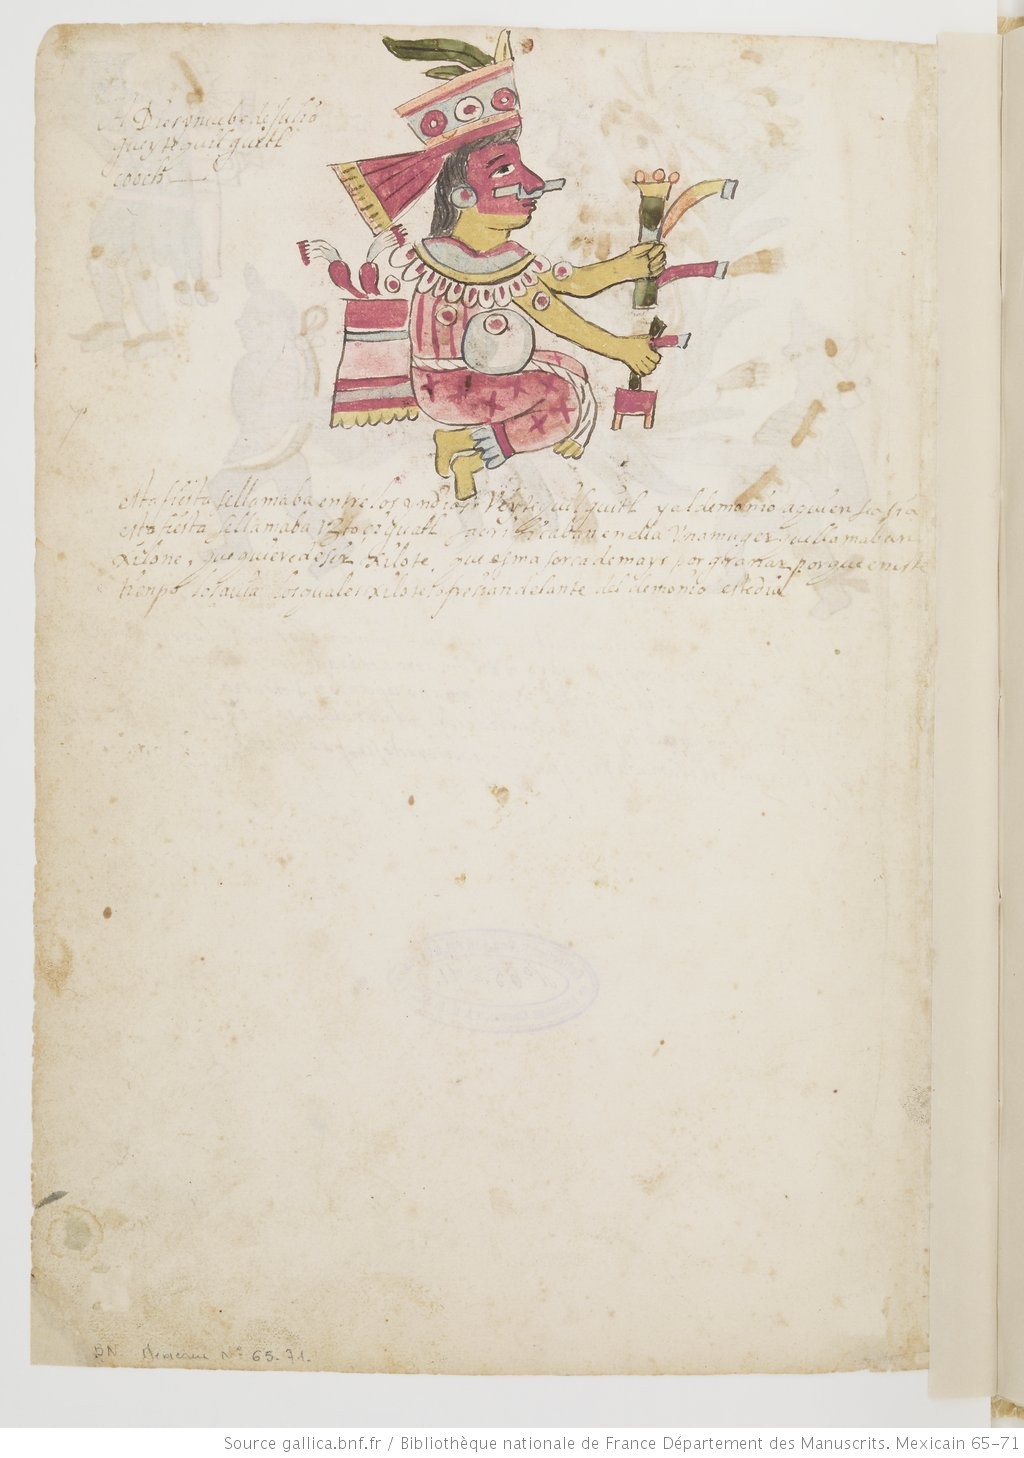 A Diez nuebe de Julio
gueytequilguitl
esta fiesta se llamaba entre los yndios Veytequilguitl y al demonio a quien se asia
esta fiesta se llamaba yztocoquatl sacrificaban en ella Una muger que llamaban
xilone, que quiere desir Xilote, que es masorca de mays por granar porque en este
tienpo los auia los quales xilotes ofresian delante del demonio este dia
BN. Mexicain Nº 65-71.
Source gallica.bnf.fr / Bibliothèque nationale de France Département des Manuscrits. Mexicain 65-71